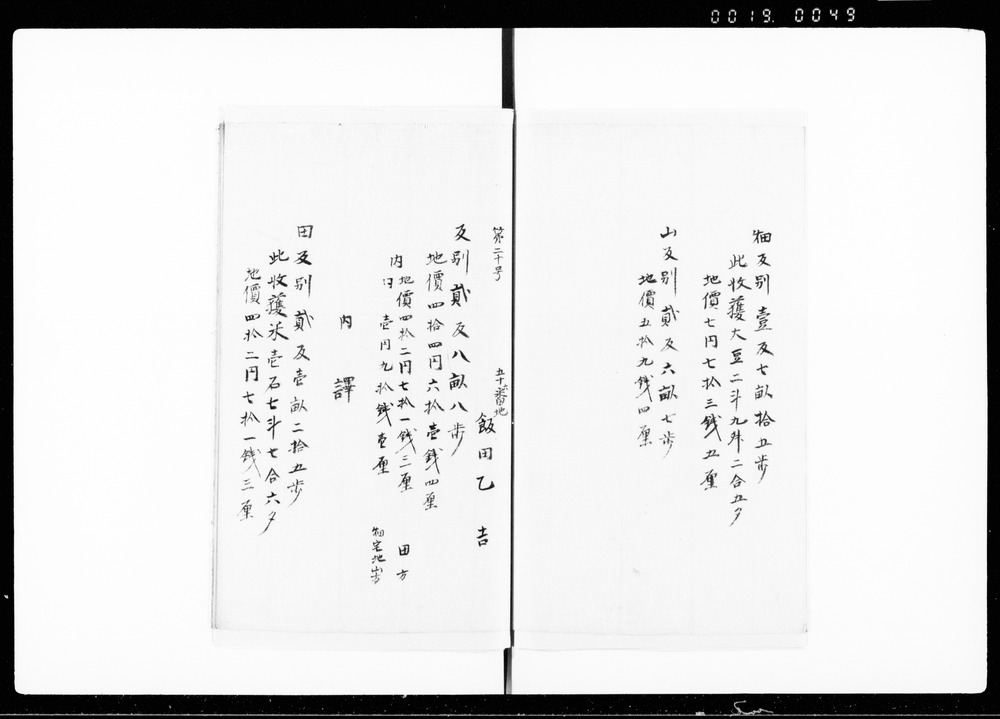 0019. 0049
畑反別壹反七畝拾五歩
此收獲大豆二斗九升二合五夕
地價七円七拾三銭五厘
山反別貳反六畝七歩
地價五拾九銭四厘
第二十号
五十番地
飯田乙吉
反別貳反八畝八歩
地價四拾四円六拾壱銭四厘
内 地價四拾二円七拾一銭三厘 田方
〃 壱円九拾銭壱厘 畑宅地山方
内譯
田反別貳反壱畝二拾五歩
此收獲米壱石七斗七合六夕
地價四拾二円七拾一銭三厘